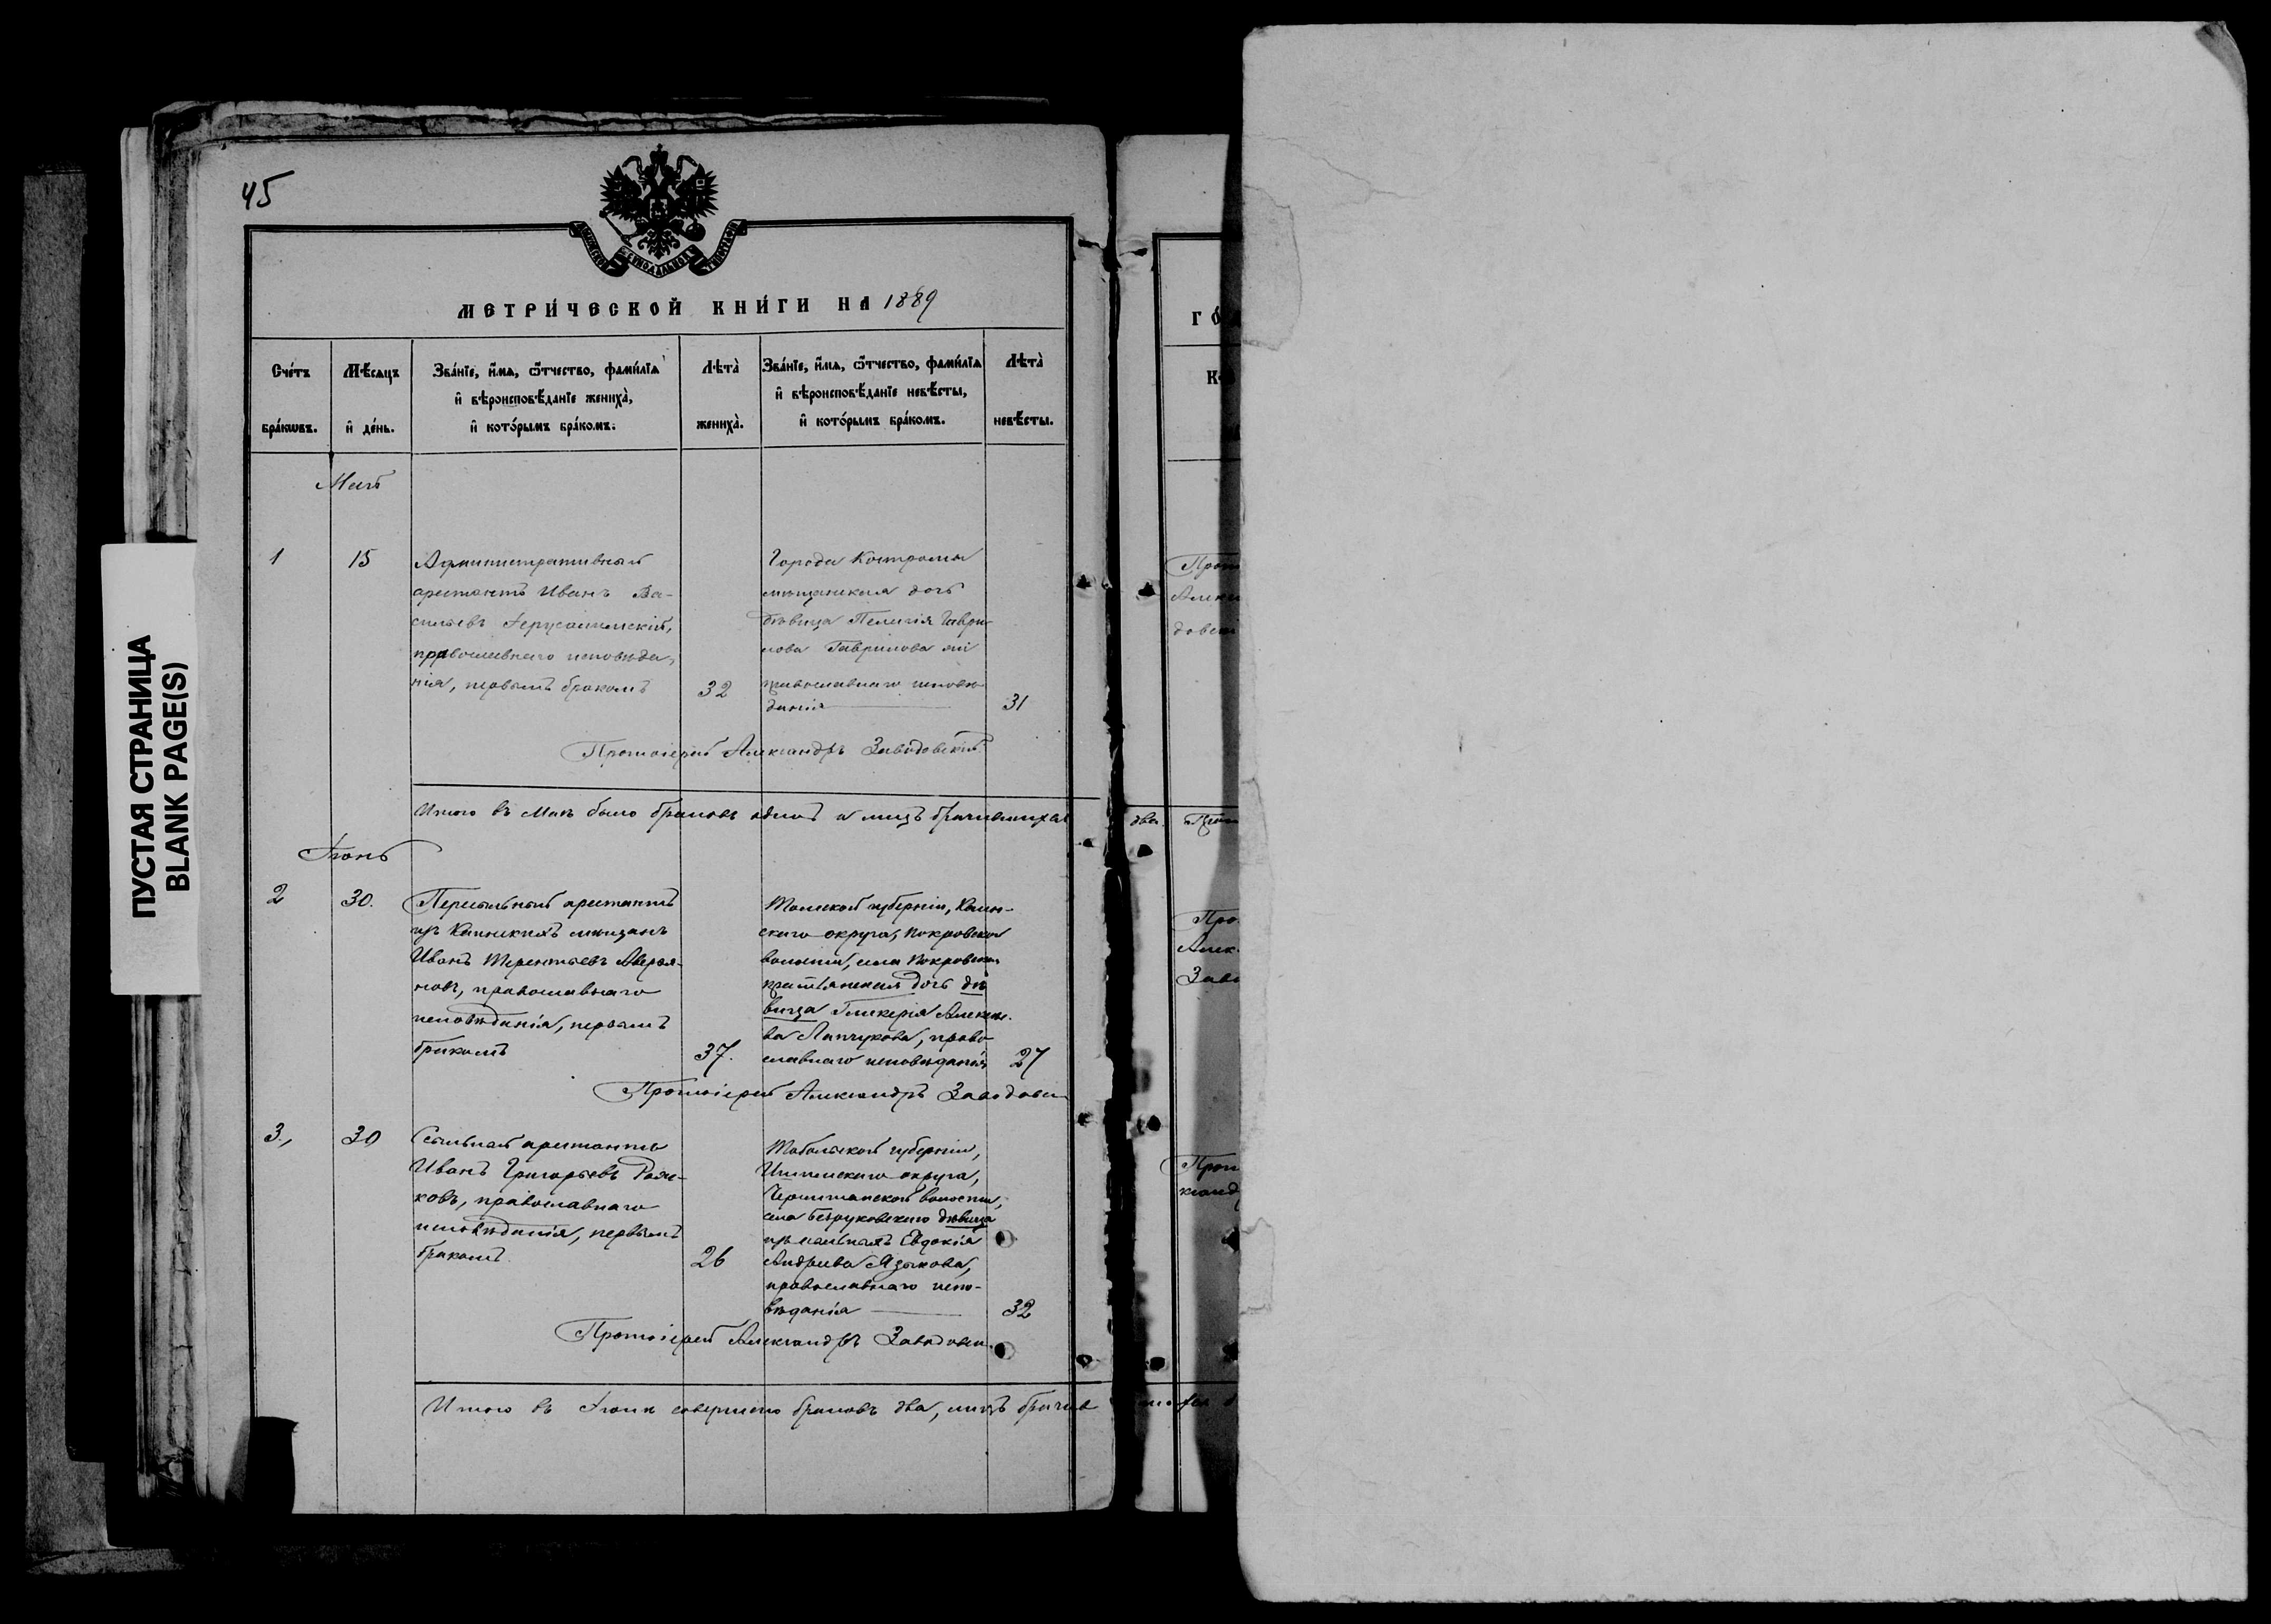 45
МЕТРИ́ЧЕСКОЙ КНИ́ГИ НА 1889
Сче́тъ бра́кѡвъ.
Мѣ́сяцъ и҆ де́нь.
Зва́нїе, и҆́мѧ, ѻ҆́тчество, фами́лїѧ
и҆ вѣроисповѣ́данїе жениха̀,
и҆ кото́рымъ бра́комъ.
Лѣта̀ жениха̀.
Зва́нїе, и҆́мѧ, ѻ҆́тчество, фами́лїѧ
и҆ вѣроисповѣ́данїе невѣ́сты,
и҆ кото́рымъ бра́комъ.
Лѣта̀ невѣ́сты.
Май
1
15
Административный
арестантъ Иванъ Ва-
сильевъ Іерусалимскій,
православнаго исповѣда-
нія, первымъ бракомъ
32
Города Костромы
мѣщанская дочь
дѣвица Пелагія Гаври
лова Гаврилова
православнаго исповѣ
данія
31
Протоіерей Александръ Заводовскій
Итого въ Маѣ было браковъ одинъ а лицъ брачившихся
два.
Іюнь
2
30.
Пересыльный арестантъ
изъ Каинскихъ мѣщанъ
Иванъ Терентьевъ Аверья-
новъ, православнаго
исповѣданія, первымъ
бракомъ
37.
Томской губерніи, Каин-
скаго округа, Покровской
волости, села Покровскаго
крестьянская дочь дѣ
вица Гликерія Алексѣе-
ва Лапчукова, право
славнаго исповѣданія
27
Протоіерей Александръ Заводовскі
3.,
30
Ссыльный арестантъ
Иванъ Григорьевъ
ковъ, православнаго
исповѣданія, первымъ
бракомъ.
26
Тобольской губерніи,
Ишимскаго округа,
волости,
села Безруковскаго дѣвица
изъ ссыльныхъ Евдокія
Андреева Языкова,
православнаго испо-
вѣданія
32
Протоіерей Александръ Заводовскі
Итого въ Іюнѣ совершено браковъ два, лицъ брачив
ПУСТАЯ СТРАНИЦА
BLANK PAGE(S)